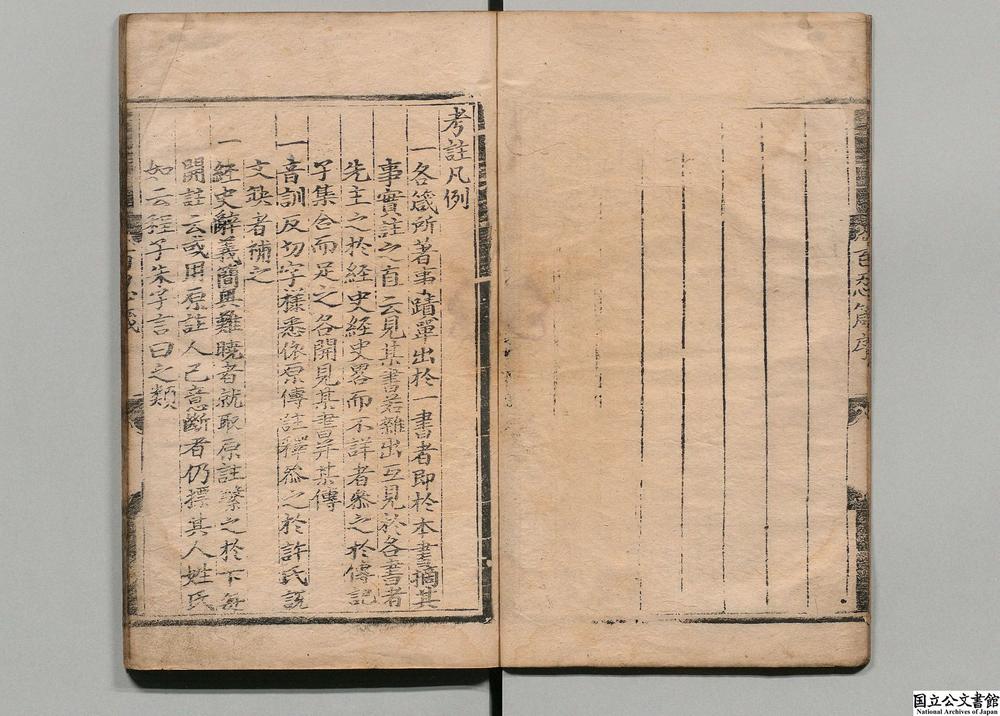 百忍箴序
考註凡例
一各箴所著事蹟單出於一書者即於本書摘其
事實註之首云見某書若雜出互見於各書者
先主之於經史經史畧而不詳者叅之於傳記
子集合而足之各開見某書并某傳
一音訓反切字樣悉依原傳註釋叅之於許氏說
文缺者補之
一經史辭義簡奧難曉者就取原註繫之於下每
開註云或用原註人己意斷者仍摽其人姓氏
如云程子朱子言曰之類
国立公文書館
National Archives of Japan